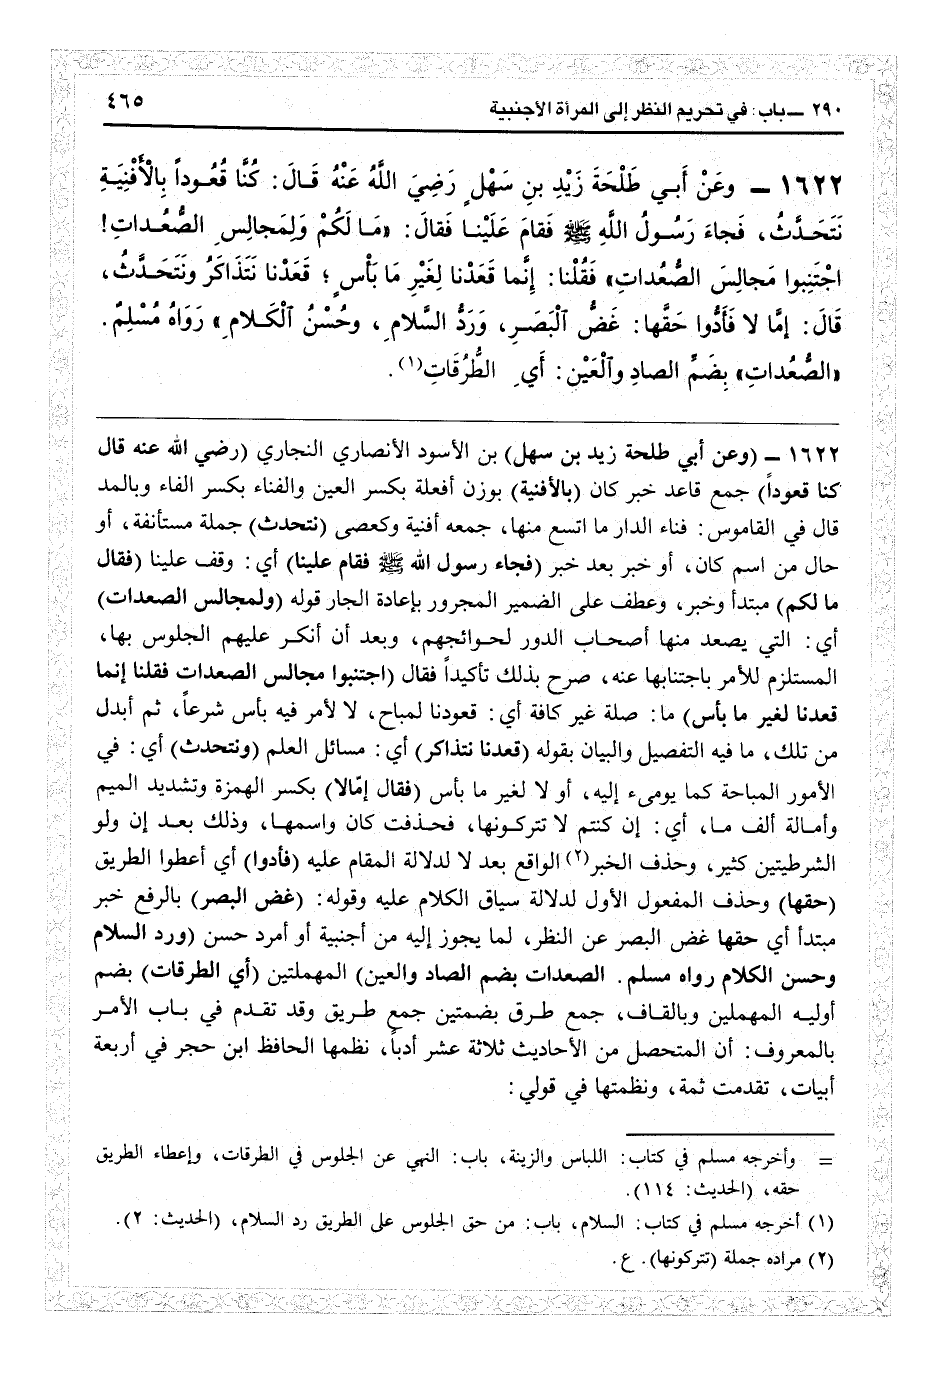 ٢٩٠ ــ باب: في تحريم النظر إلى المرأة الأجنبية
٤٦٥
١٦٢٢ ــ وعَنْ أَبي طَلْحَةَ زَيْدِ بنِ سَهْلٍ رَضِيَ اللَّهُ عَنْهُ قَالَ: كُنَّا قُعُوداً بِالْأَفْنِيَةِ
نَتَحَدَّثُ، فَجاءَ رَسُولُ اللَّهِ ﷺ فَقامَ عَلَيْنا فَقالَ: «مَا لَكُمْ وَلِمَجالِسِ الصُّعُداتِ!
اجْتَنِبوا مَجالِسَ الصُّعُداتِ» فَقُلْنا: إنَّما قَعَدْنا لِغَيْرِ مَا بَأْسٍ؛ قَعَدْنا نَتَذاكَرُ ونَتَحَدَّثُ،
قَالَ: إمَّا لا فَأَدُّوا حَقَّها: غَضُّ ٱلْبَصَرِ، وَرَدُّ السَّلامِ، وحُسْنُ ٱلْكَلامِ» رَوَاهُ مُسْلِمٌ.
«الصُّعُداتِ» بِضَمِّ الصادِ وٱلْعَيْنِ: أَيِ الطُّرُقَاتِ(١).
١٦٢٢ ــ (وعن أبي طلحة زيد بن سهل) بن الأسود الأنصاري النجاري (رضي الله عنه قال
كنا قعوداً) جمع قاعد خبر كان (بالأفنية) بوزن أفعلة بكسر العين والفناء بكسر الفاء وبالمد
قال في القاموس: فناء الدار ما اتسع منها، جمعه أفنية وكعصى (نتحدث) جملة مستأنفة، أو
حال من اسم كان، أو خبر بعد خبر (فجاء رسول الله ﷺ فقام علينا) أي: وقف علينا (فقال
ما لكم) مبتدأ وخبر، وعطف على الضمير المجرور بإعادة الجار قوله (ولمجالس الصعدات)
أي: التي يصعد منها أصحاب الدور لحوائجهم، وبعد أن أنكر عليهم الجلوس بها،
المستلزم للأمر باجتنابها عنه، صرح بذلك تأكيداً فقال (اجتنبوا مجالس الصعدات فقلنا إنما
قعدنا لغير ما بأس) ما: صلة غير كافة أي: قعودنا لمباح، لا لأمر فيه بأس شرعاً، ثم أبدل
من تلك، ما فيه التفصيل والبيان بقوله (قعدنا نتذاكر) أي: مسائل العلم (ونتحدث) أي: في
الأمور المباحة كما يومىء إليه، أو لا لغير ما بأس (فقال إمّالا) بكسر الهمزة وتشديد الميم
وأمالة ألف ما، أي: إن كنتم لا تتركونها، فحذفت كان واسمها، وذلك بعد إن ولو
الشرطيتين كثير، وحذف الخبر(٢) الواقع بعد لا لدلالة المقام عليه (فأدوا) أي أعطوا الطريق
(حقها) وحذف المفعول الأول لدلالة سياق الكلام عليه وقوله: (غض البصر) بالرفع خبر
مبتدأ أي حقها غض البصر عن النظر، لما يجوز إليه من أجنبية أو أمرد حسن (ورد السلام
وحسن الكلام رواه مسلم. الصعدات بضم الصاد والعين) المهملتين (أي الطرقات) بضم
أوليه المهملين وبالقاف، جمع طرق بضمتين جمع طريق وقد تقدم في باب الأمر
بالمعروف: أن المتحصل من الأحاديث ثلاثة عشر أدباً، نظمها الحافظ ابن حجر في أربعة
أبيات، تقدمت ثمة، ونظمتها في قولي:
= وأخرجه مسلم في كتاب: اللباس والزينة، باب: النهي عن الجلوس في الطرقات، وإعطاء الطريق
حقه، (الحديث: ١١٤).
(١) أخرجه مسلم في كتاب: السلام، باب: من حق الجلوس على الطريق رد السلام، (الحديث: ٢).
(٢) مراده جملة (تتركونها). ع.